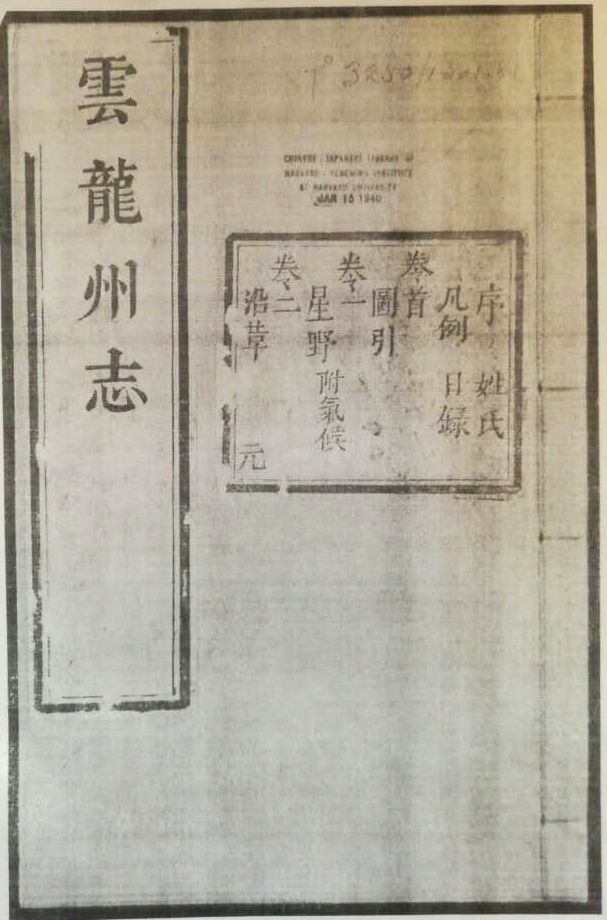 雲龍州志
序 姓氏
凡例 目録
卷首
圖引
卷一
星野 附氣候
卷二
沿革 元
CHINESE - JAPANESE LIBRARY OF
HARVARD - YENCHING INSTITUTE
AT HARVARD UNIVERSITY
JAN 16 1940